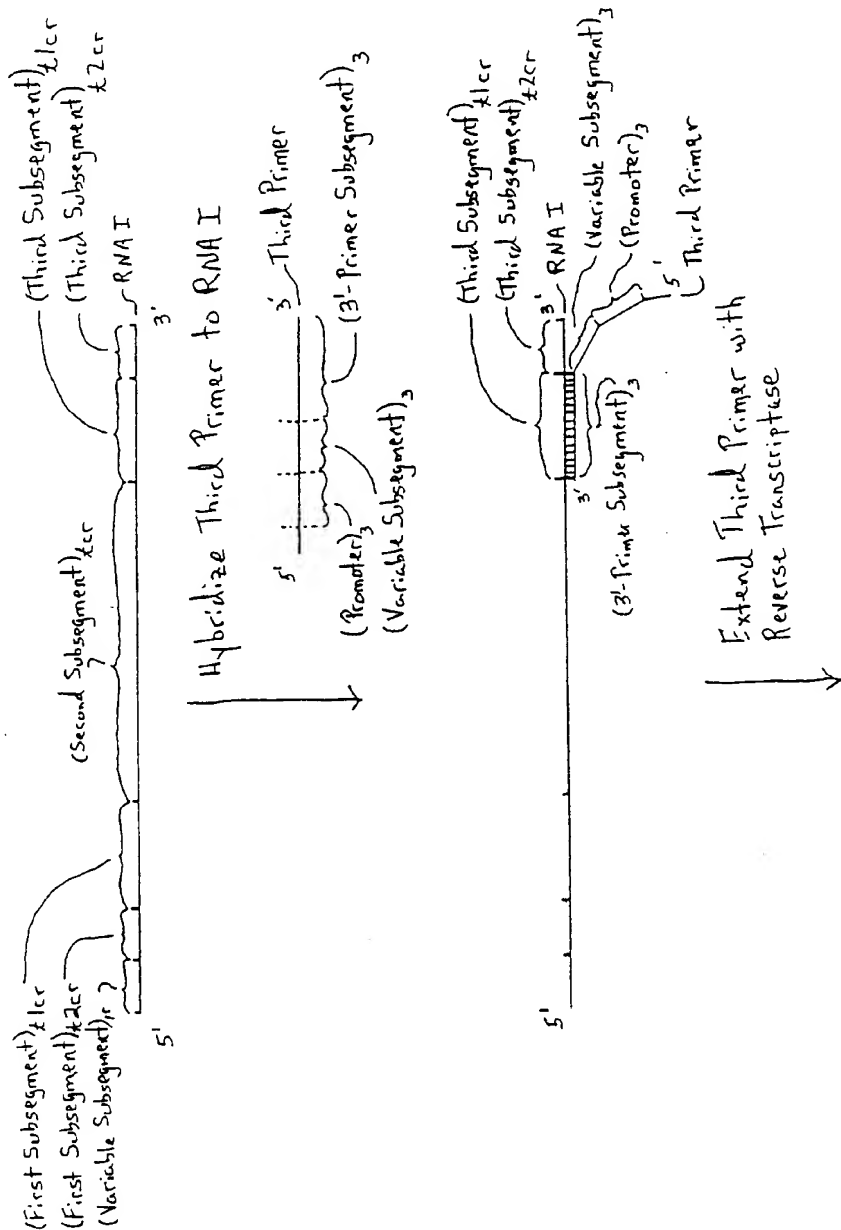 (First Subsegment)t1cr
(First Subsegment)t2cr
(Variable Subsegment)1r
(Second Subsegment)tcr
(Third Subsegment)t1cr
(Third Subsegment)t2cr
RNA I
5'
3'
Hybridize Third Primer to RNA I
5'
3'
Third Primer
(Promoter)3
(Variable Subsegment)3
(3'-Primer Subsegment)3
(Third Subsegment)t1cr
(Third Subsegment)t2cr
5'
3'
RNA I
(Variable Subsegment)3
(Promoter)3
3'
(3'-Primer Subsegment)3
5'
Third Primer
Extend Third Primer with
Reverse Transcriptase